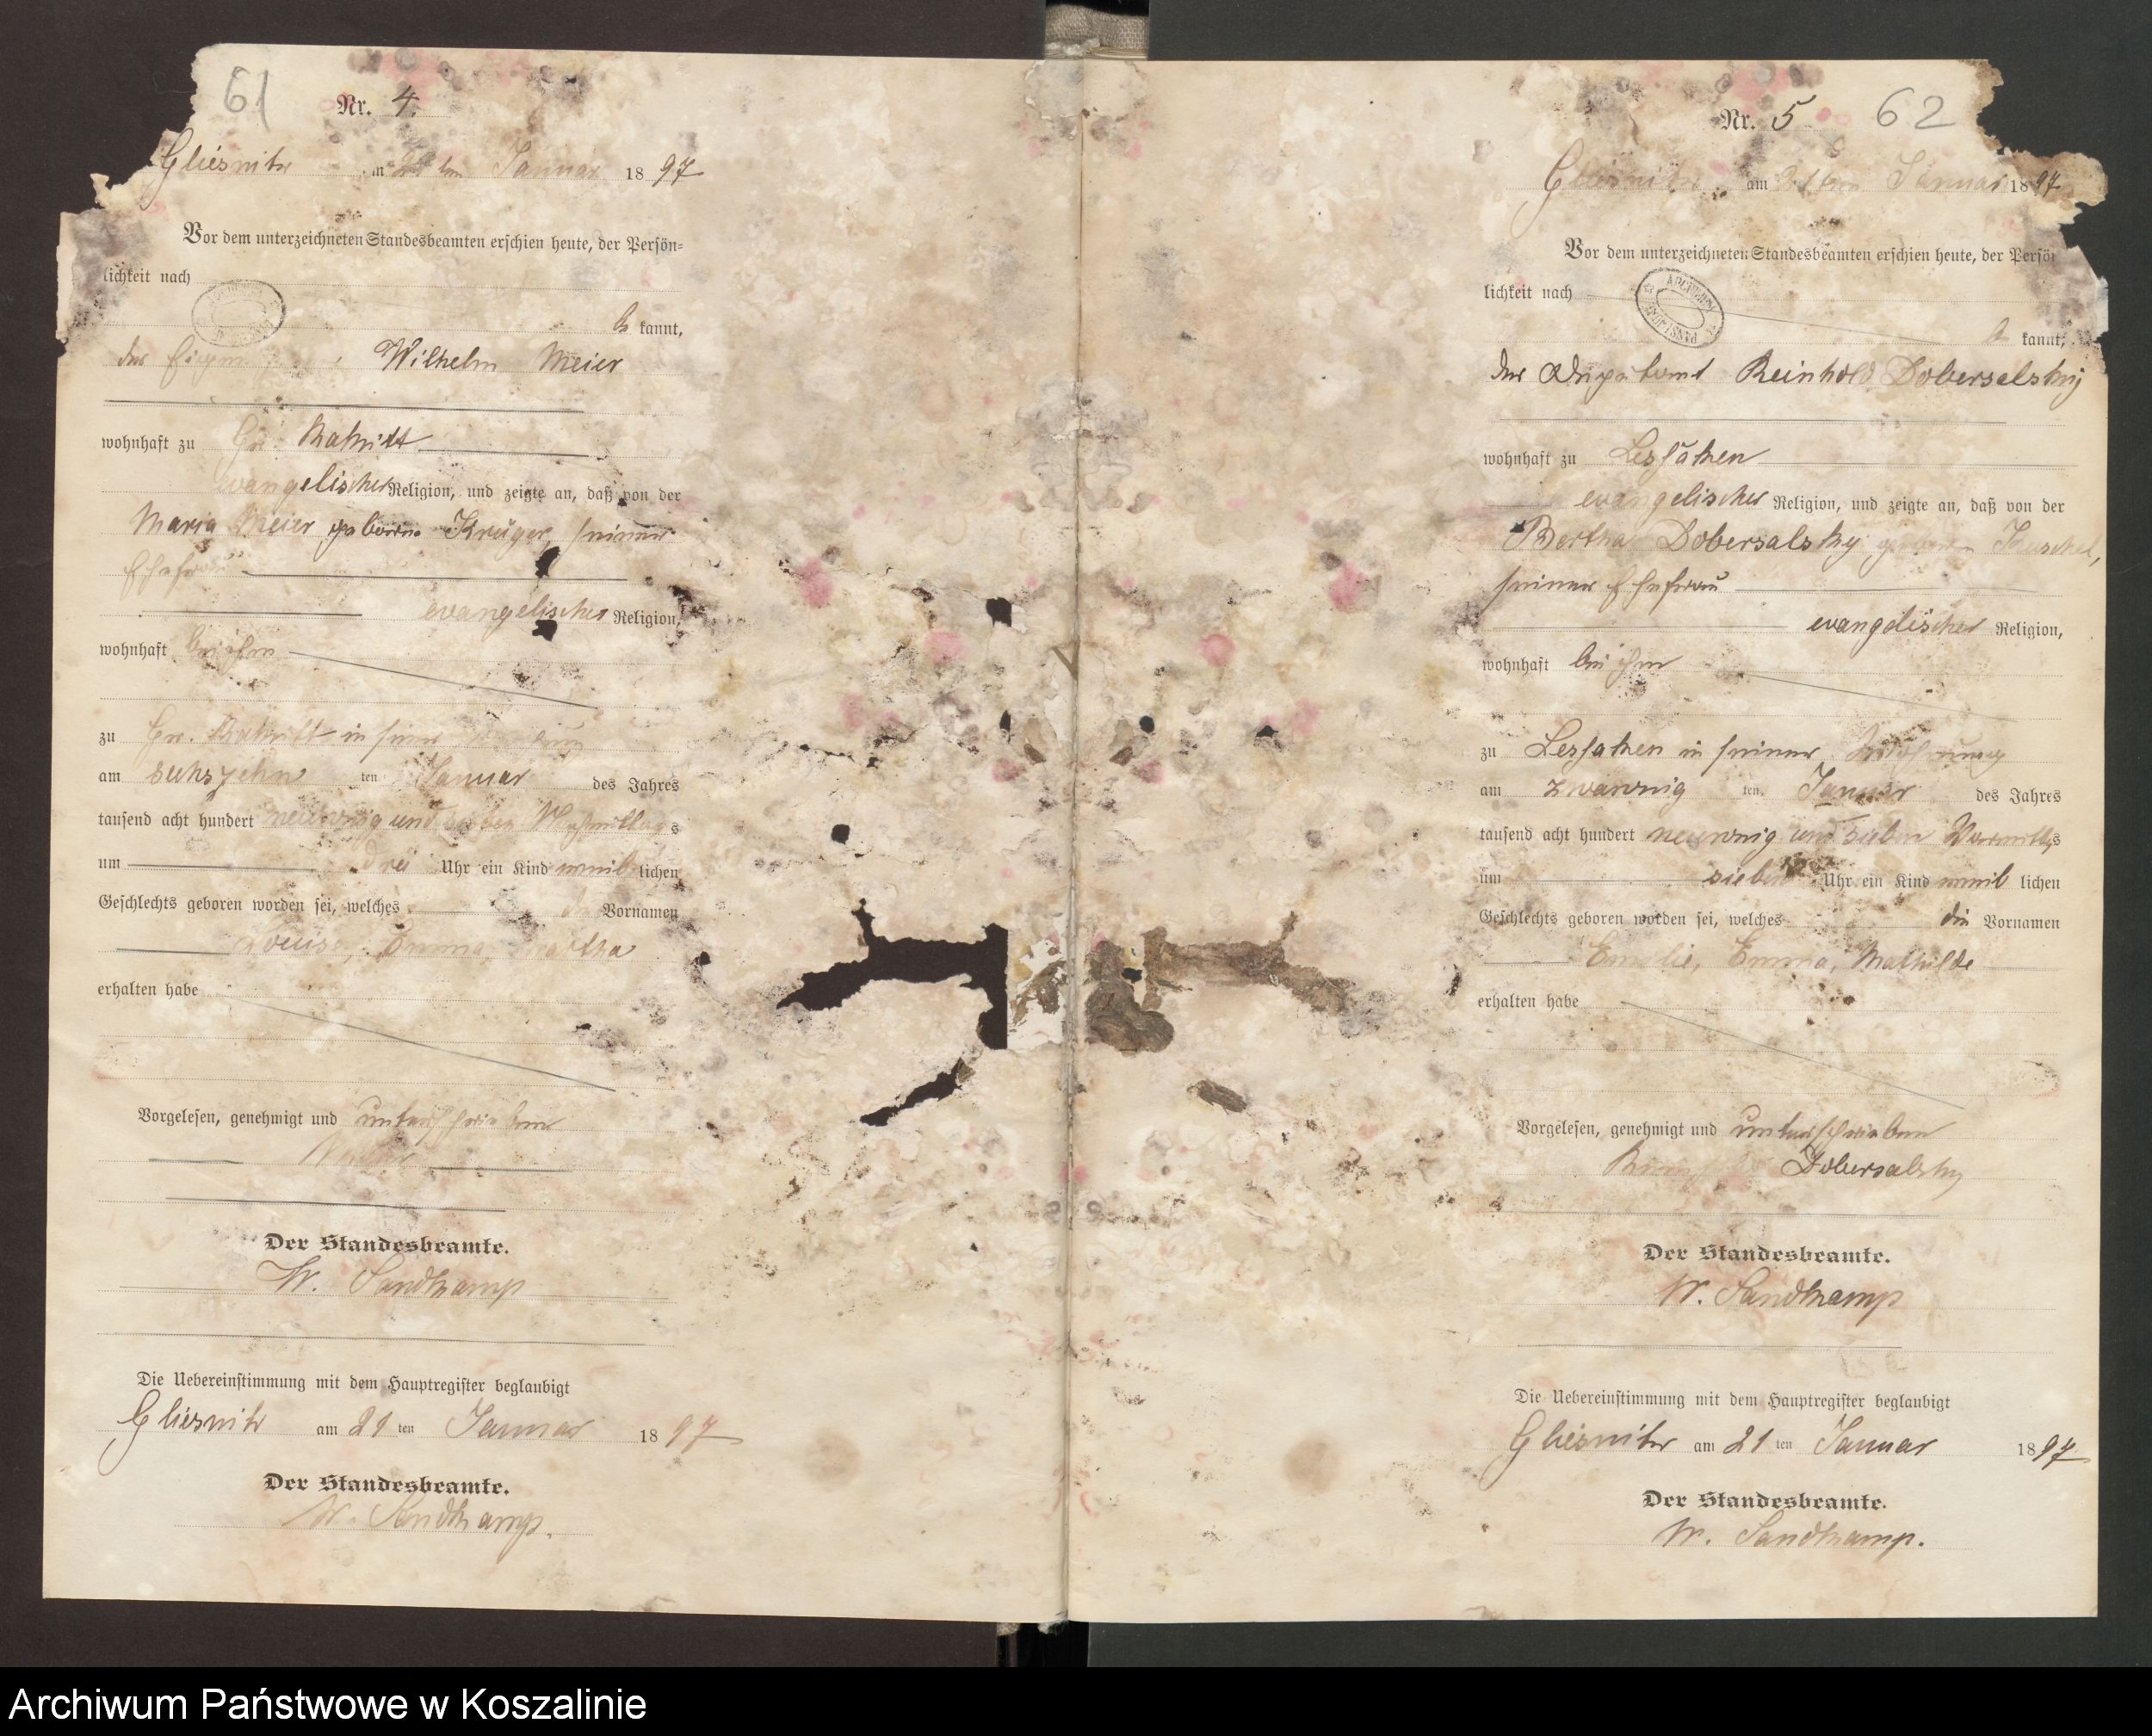 61
Nr. 4.
Gliesnitz am 21ten Januar 1897
Vor dem unterzeichneten Standesbeamten erschien heute, der Persön=
lichkeit nach
be kannt,
der Wilhelm Meier
wohnhaft zu Gr. Rakitt
evangelischer Religion, und zeigte an, daß von der
Maria Meier geborne Krüger, seiner
Ehefrau
evangelischer Religion,
wohnhaft bei ihm
zu Gr. Rakitt in seiner Wohnung
am sechszehn ten Januar des Jahres
tausend acht hundert neunzig und sieben Nachmittags
um drei Uhr ein Kind weib lichen
Geschlechts geboren worden sei, welches die Vornamen
Louise, Emma, Martha
erhalten habe
Vorgelesen, genehmigt und unterschrieben
Der Standesbeamte.
W. Sandkamp
Die Uebereinstimmung mit dem Hauptregister beglaubigt
Gliesnitz am 21 ten Januar 1897
Der Standesbeamte.
W. Sandkamp.
62
Nr. 5
Gliesnitz am 21ten Januar 1897
Vor dem unterzeichneten Standesbeamten erschien heute, der Persön
lichkeit nach
be kannt,
der Reinhold Dobersalsky
wohnhaft zu Lessaken
evangelischer Religion, und zeigte an, daß von der
Bertha Dobersalsky geborne Kuschel,
seiner Ehefrau
evangelischer Religion,
wohnhaft bei ihm
zu Lessaken in seiner Wohnung
am zwanzig ten Januar des Jahres
tausend acht hundert neunzig und sieben Vormittgs
um sieben Uhr ein Kind weib lichen
Geschlechts geboren worden sei, welches die Vornamen
Emilie, Emma, Mathilde
erhalten habe
Vorgelesen, genehmigt und unterschrieben
Reinhold Dobersalsky
Der Standesbeamte.
W. Sandkamp
Die Uebereinstimmung mit dem Hauptregister beglaubigt
Gliesnitz am 21 ten Januar 1897
Der Standesbeamte.
W. Sandkamp.
Archiwum Państwowe w Koszalinie